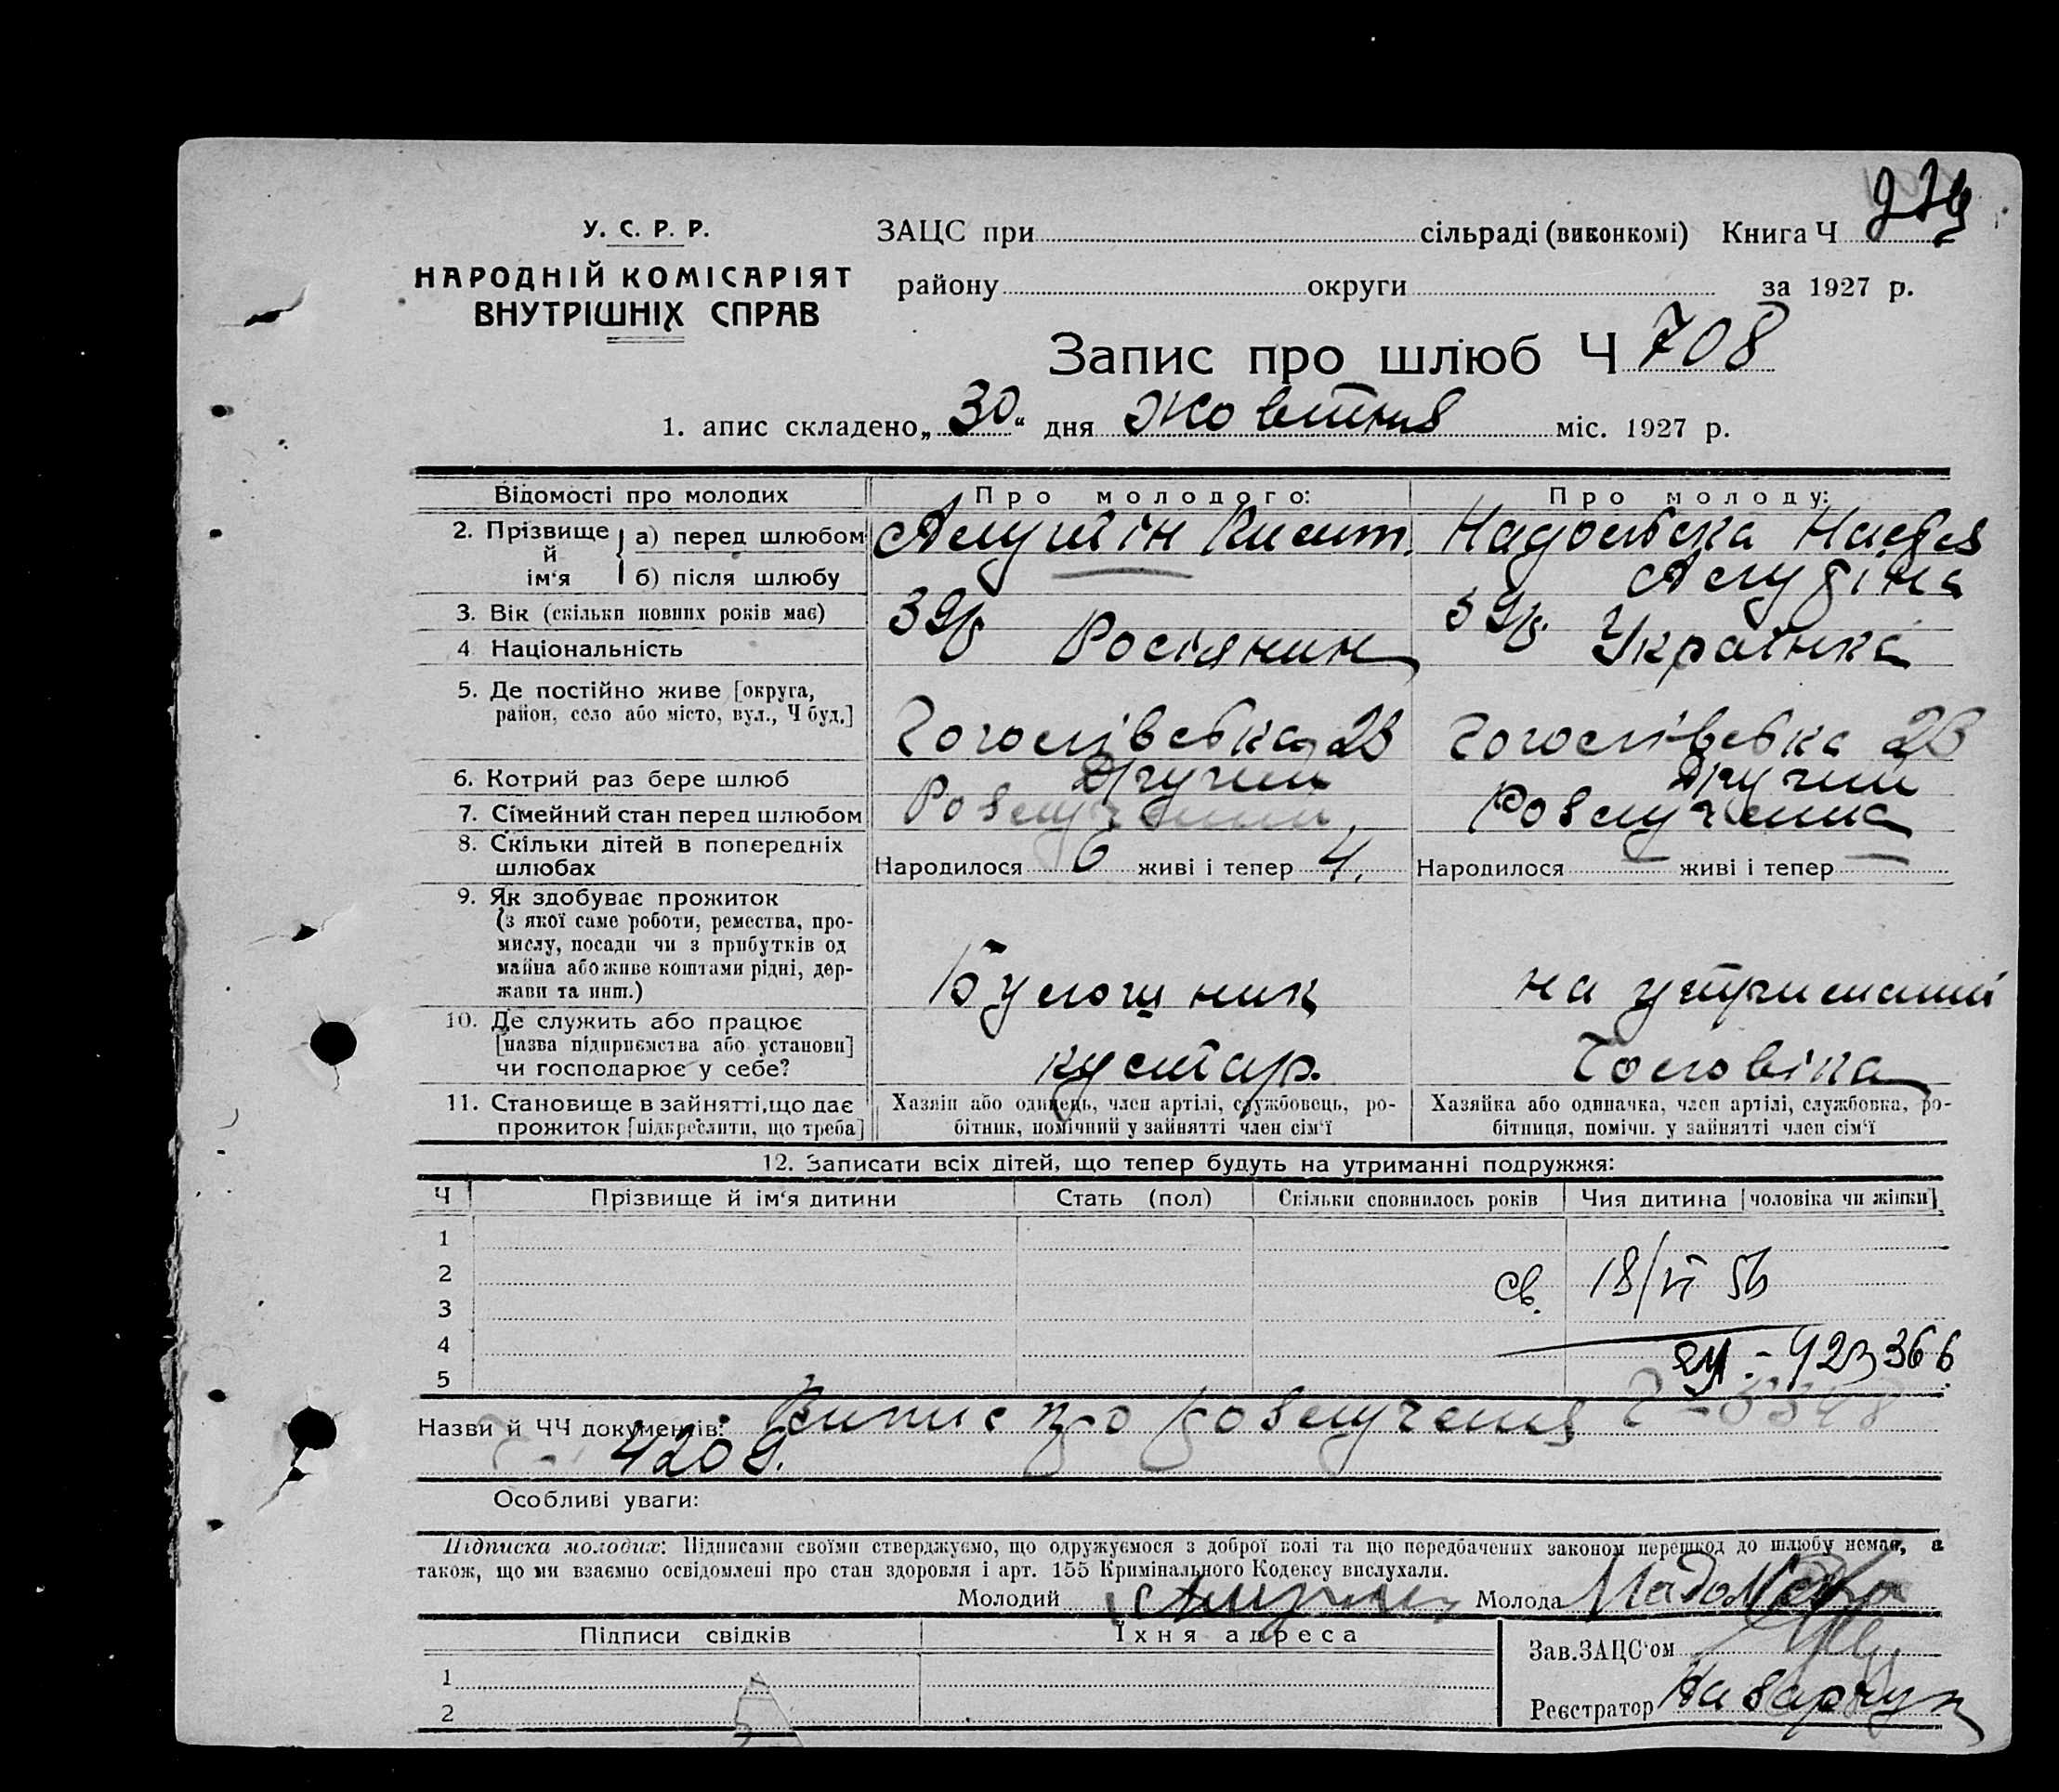 У. С. Р. Р.
НАРОДНІЙ КОМІСАРІЯТ
ВНУТРІШНІХ СПРАВ
ЗАЦС при сільраді (виконкомі) Книга Ч
району округи за 1927 р.
Запис про шлюб Ч 708
1. апис складено „30“ дня Жовтня міс. 1927 р.
Відомості про молодих Про молодого: Про молоду:
2. Прізвище й ім'я а) перед шлюбом
б) після шлюбу
3. Вік (скільки повних років має) 39
4 Національність Росіянин Українка
5. Де постійно живе [округа, район, село або місто, вул., Ч буд.] Гоголівська 23 Гоголівська 23
6. Котрий раз бере шлюб другий другий
7. Сімейний стан перед шлюбом Розлучений Розлучена
8. Скільки дітей в попередніх шлюбах Народилося 6 живі і тепер 4. Народилося — живі і тепер —
9. Як здобуває прожиток
(з якої саме роботи, ремества, про-
мислу, посади чи з прибутків од
майна або живе коштами рідні, дер-
жави та инш.)
Булошник на утриманні
10. Де служить або працює
[назва підприємства або установи]
чи господарює у себе?
кустар. Чоловіка
11. Становище в зайнятті, що дає
прожиток [підкреслити, що треба]
Хазяїн або одинець, член артілі, службовець, ро-
бітник, помічний у зайнятті член сім'ї
Хазяйка або одиначка, член артілі, службовка, ро-
бітниця, помічн. у зайнятті член сім'ї
12. Записати всіх дітей, що тепер будуть на утриманні подружжя:
Ч Прізвище й ім'я дитини Стать (пол) Скільки сповнилось років Чия дитина [чоловіка чи жінки]
1
2 св. 18/VI 56
3
4 923366
5
Назви й ЧЧ документів: Випис про розлучення
4209.
Особливі уваги:
Підписка молодих: Підписами своїми стверджуємо, що одружуємося з доброї волі та що передбачених законом перешкод до шлюбу немає, а
також, що ми взаємно освідомлені про стан здоровля і арт. 155 Кримінального Кодексу вислухали.
Молодий Молода
Підписи свідків Їхня адреса
Зав. ЗАЦС'ом
1
Реєстратор Назарчук
2